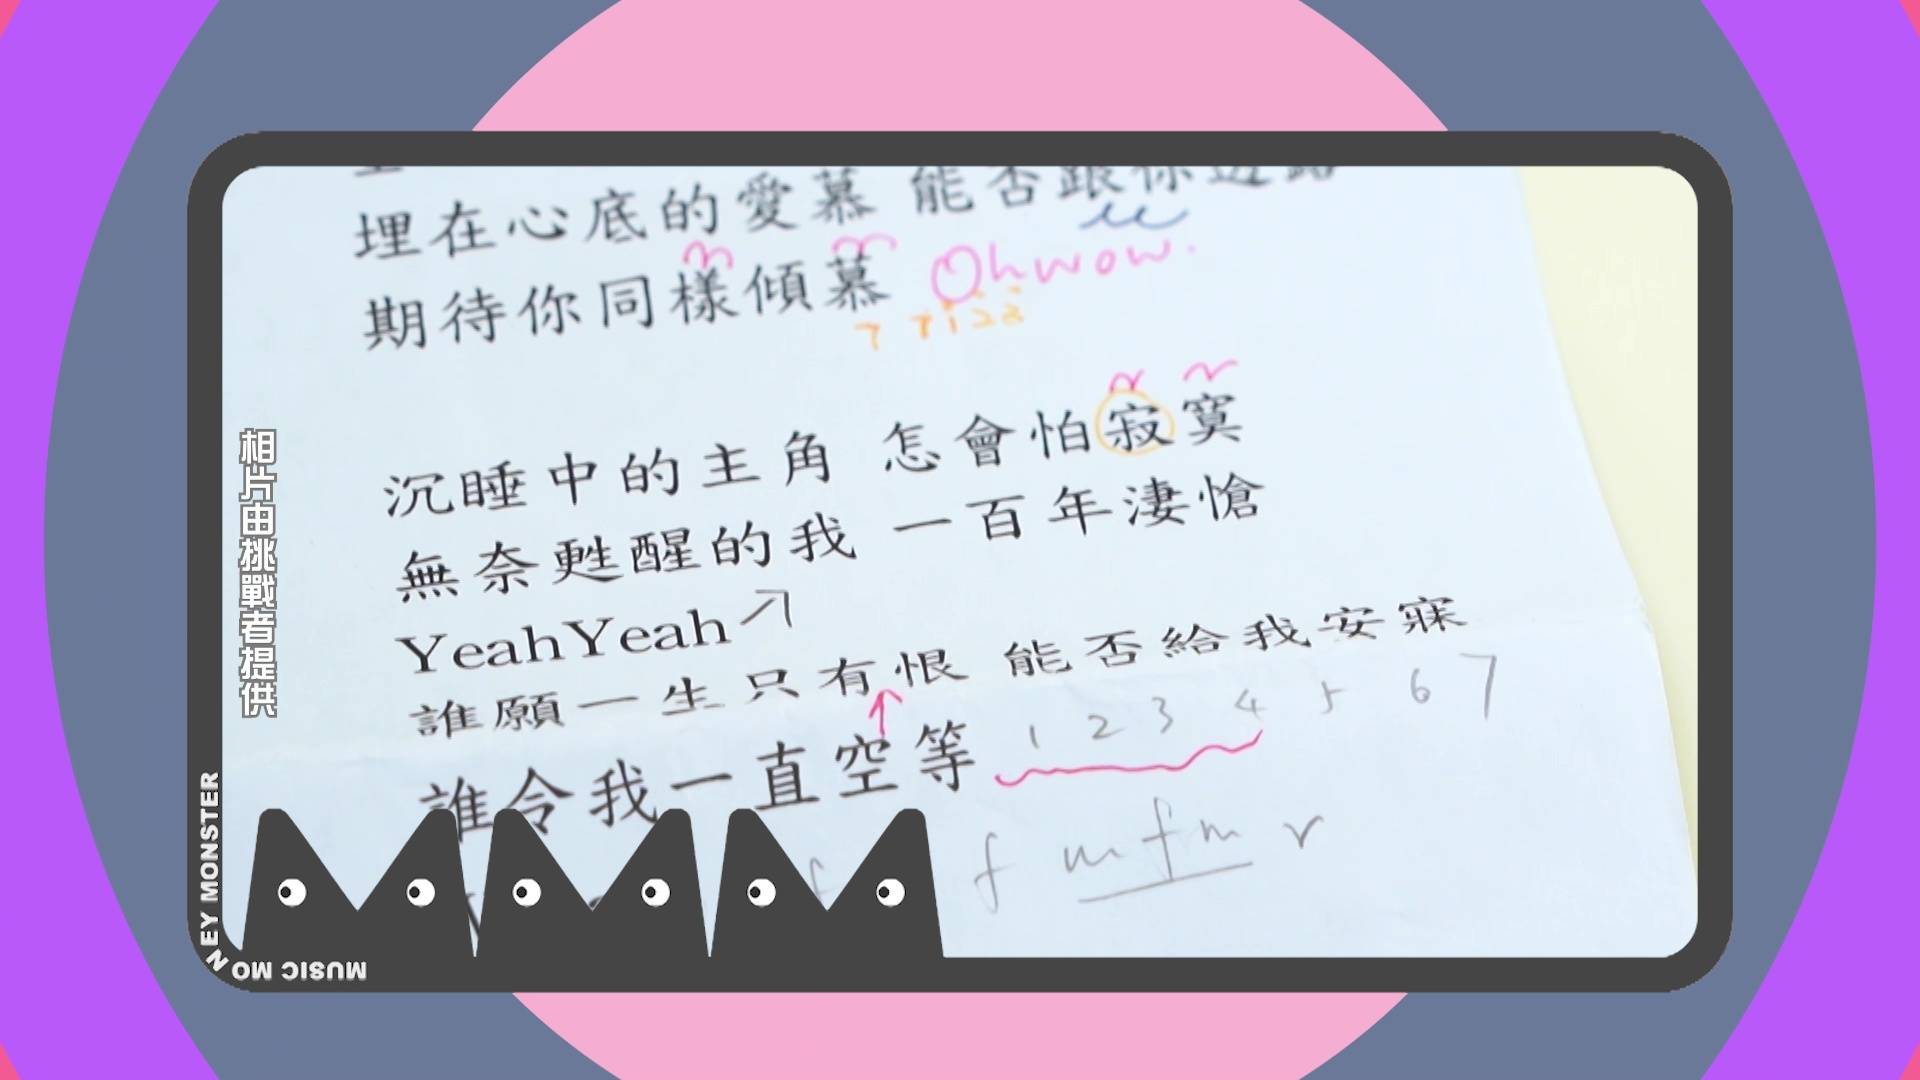 埋在心底的愛慕 能否跟你透露
期待你同樣傾慕 Oh wow.
7 7 i 2 2
沉睡中的主角 怎會怕寂寞
無奈甦醒的我 一百年淒愴
YeahYeah
誰願一生只有恨 能否給我安寐
1 2 3 4 5 6 7
誰令我一直空等
f f m f m r
相片由挑戰者提供
MUSIC MONEY MONSTER